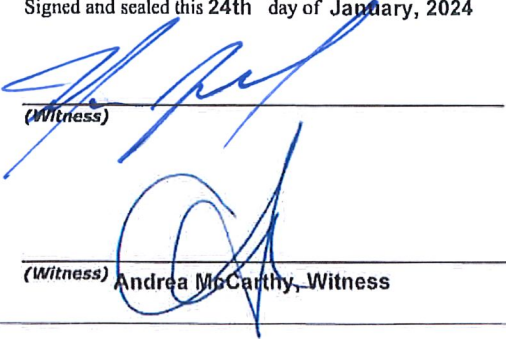 Signed and sealed this 24th day of January, 2024
(Witness)
(Witness) Andrea McCarthy, Witness